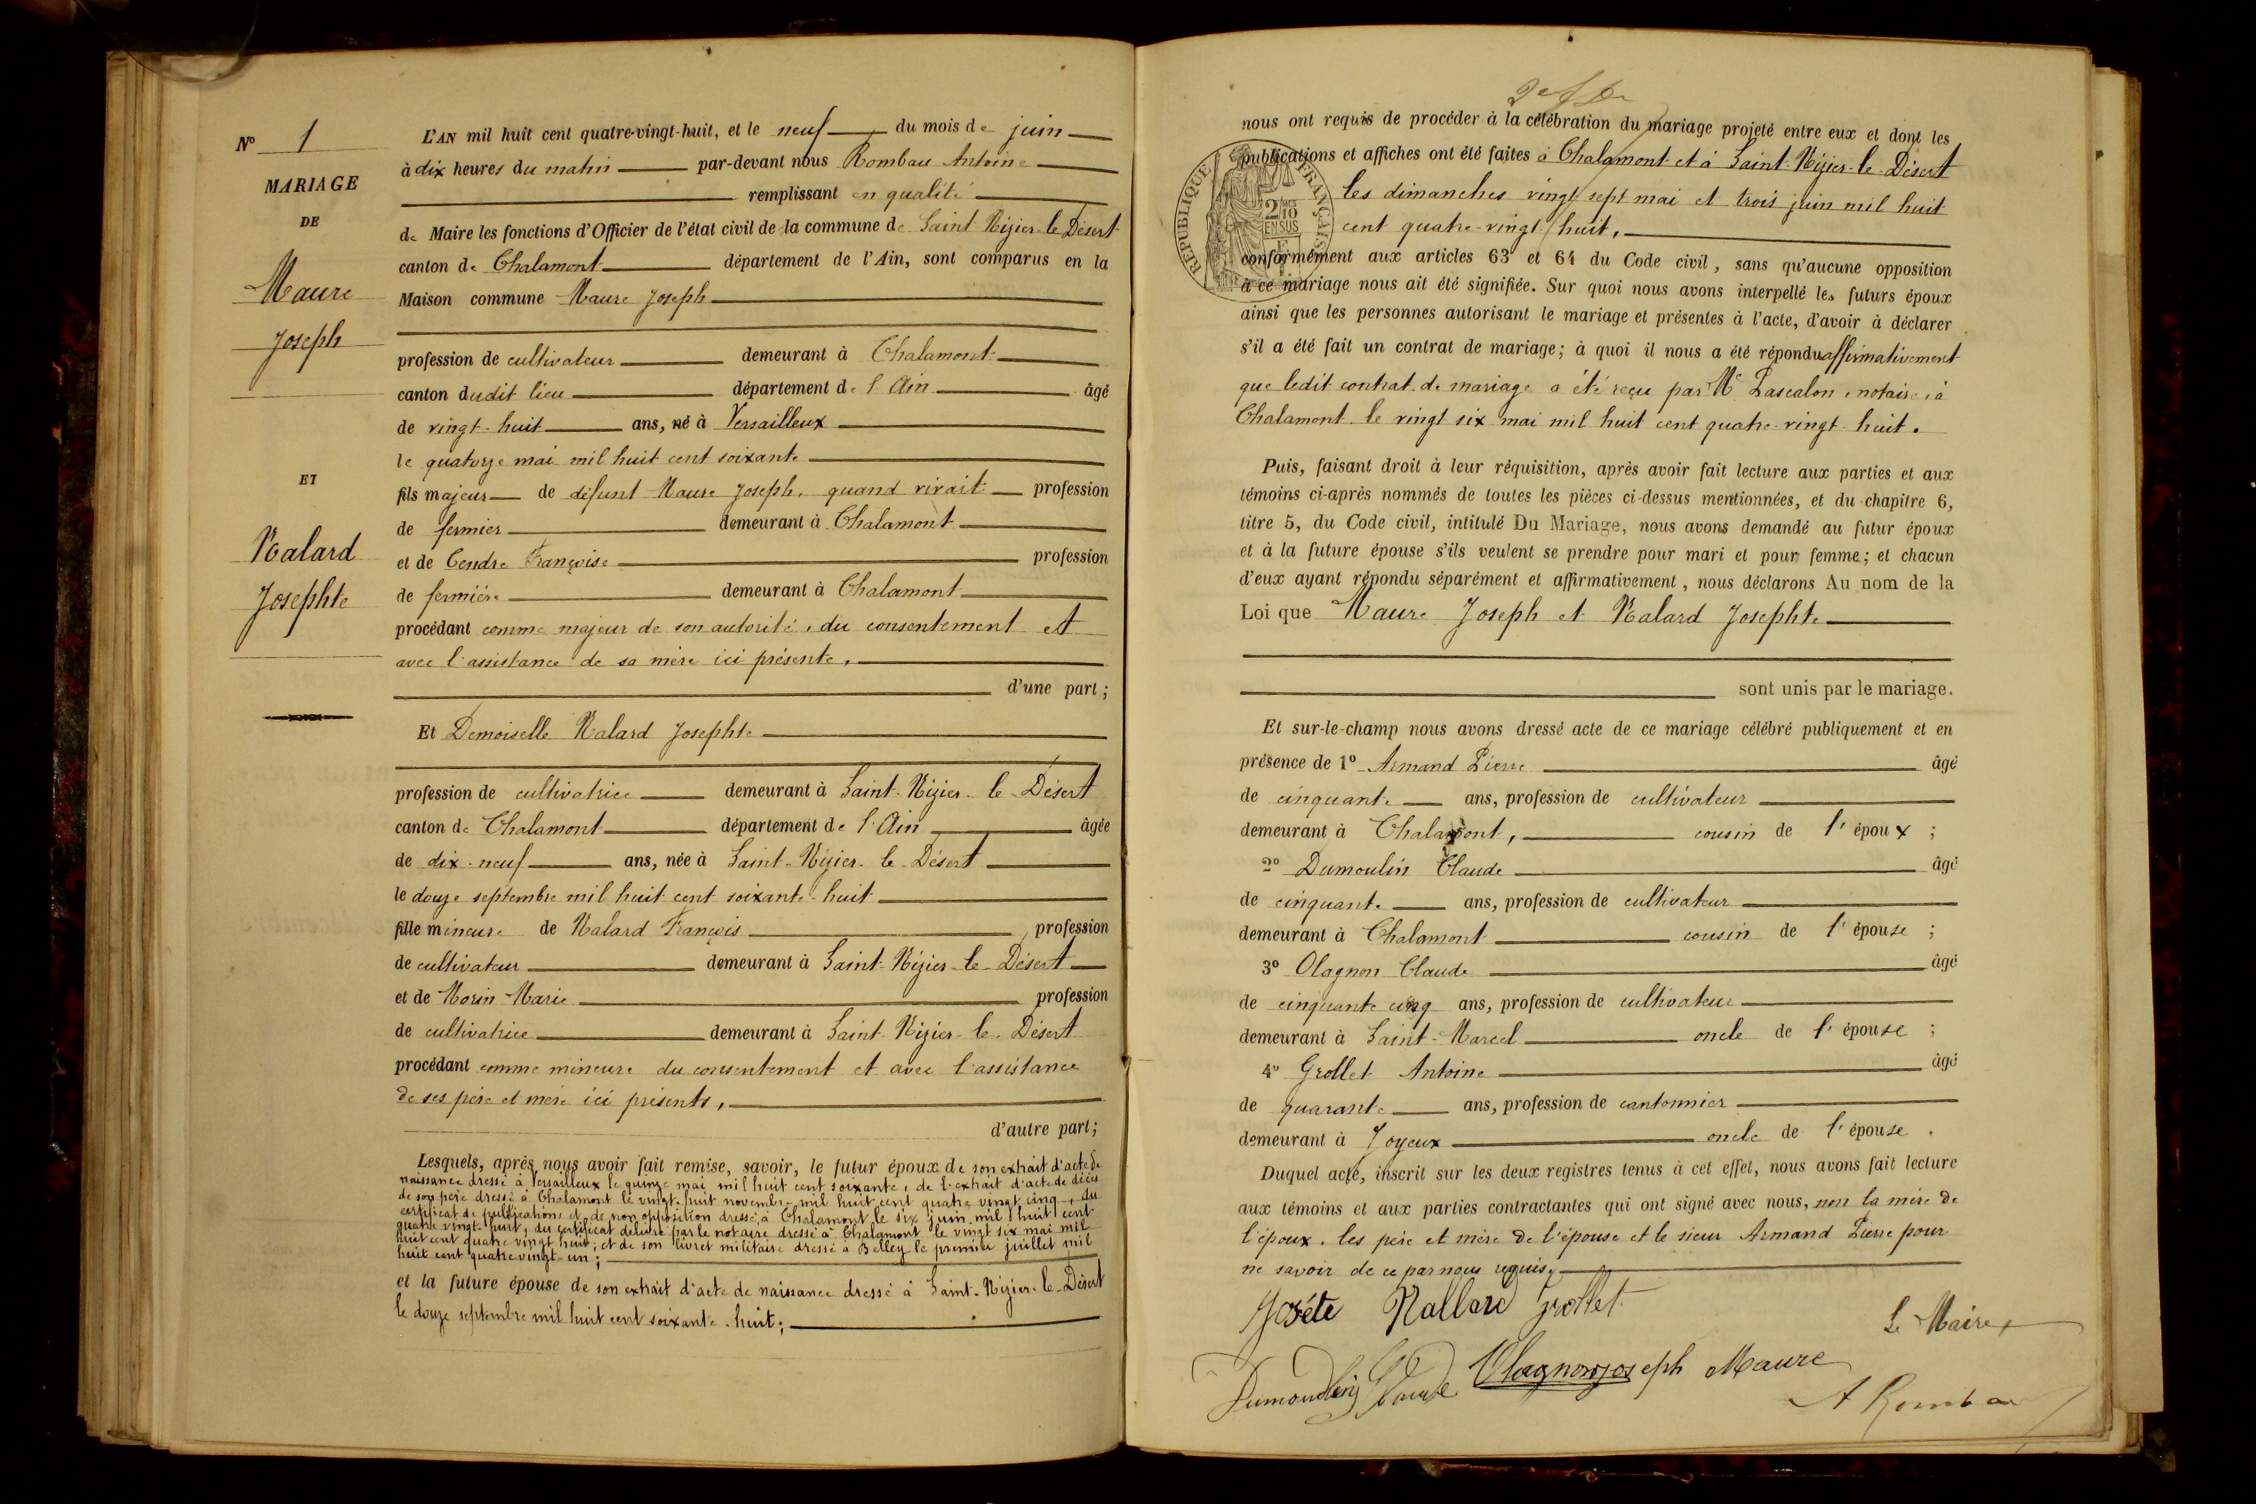 N° 1
MARIAGE
DE
Maure
Joseph
ET
Ralard
Josephte
L'AN mil huit cent quatre-vingt-huit, et le neuf du mois de juin
à dix heures du matin par-devant nous Rombau Antoine
remplissant en qualité
de Maire les fonctions d'Officier de l'état civil de la commune de Saint-Nizier-le-Désert
canton de Chalamont département de l'Ain, sont comparus en la
Maison commune Maure Joseph
profession de cultivateur demeurant à Chalamont
canton dudit lieu département de l'Ain âgé
de vingt-huit ans, né à Versailleux
le quatorze mai mil huit cent soixante
fils majeur de défunt Maure Joseph, quand vivait profession
de fermier demeurant à Chalamont
et de Cendre Françoise profession
de fermière demeurant à Chalamont
procédant comme majeur de son autorité, du consentement et
avec l'assistance de sa mère ici présente,
d'une part;
Et Demoiselle Ralard Josephte
profession de cultivatrice demeurant à Saint-Nizier-le-Désert
canton de Chalamont département de l'Ain âgée
de dix-neuf ans, née à Saint-Nizier-le-Désert
le douze septembre mil huit cent soixante-huit
fille mineure de Ralard François profession
de cultivateur demeurant à Saint-Nizier-le-Désert
et de Morin Marie profession
de cultivatrice demeurant à Saint-Nizier-le-Désert
procédant comme mineure du consentement et avec l'assistance
de ses père et mère ici présents,
d'autre part;
Lesquels, après nous avoir fait remise, savoir, le futur époux de son extrait d'acte de
naissance dressé à Versailleux le quinze mai mil huit cent soixante, de l'extrait d'acte de décès
de son père dressé à Chalamont le vingt-huit novembre mil huit cent quatre vingt cinq, du
certificat de publications et de non opposition dressé à Chalamont le six juin mil huit cent
quatre vingt-huit, du certificat délivré par le notaire dressé à Chalamont le vingt six mai mil
huit cent quatre vingt huit; et de son livret militaire dressé à Belley le premier juillet mil
huit cent quatre vingt-un;
et la future épouse de son extrait d'acte de naissance dressé à Saint-Nizier-le-Désert
le douze septembre mil huit cent soixante-huit;
nous ont requis de procéder à la célébration du mariage projeté entre eux et dont les
publications et affiches ont été faites à Chalamont et à Saint-Nizier-le-Désert
les dimanches vingt sept mai et trois juin mil huit
cent quatre-vingt huit,
RÉPUBLIQUE FRANÇAISE
2/10
EN SUS
conformément aux articles 63 et 64 du Code civil, sans qu'aucune opposition
à ce mariage nous ait été signifiée. Sur quoi nous avons interpellé les futurs époux
ainsi que les personnes autorisant le mariage et présentes à l'acte, d'avoir à déclarer
s'il a été fait un contrat de mariage; à quoi il nous a été répondu affirmativement
que ledit contrat de mariage a été reçu par Me Lascalon, notaire, à
Chalamont le vingt six mai mil huit cent quatre-vingt-huit.
Puis, faisant droit à leur réquisition, après avoir fait lecture aux parties et aux
témoins ci-après nommés de toutes les pièces ci-dessus mentionnées, et du chapitre 6,
titre 5, du Code civil, intitulé Du Mariage, nous avons demandé au futur époux
et à la future épouse s'ils veulent se prendre pour mari et pour femme; et chacun
d'eux ayant répondu séparément et affirmativement, nous déclarons Au nom de la
Loi que Maure Joseph et Ralard Josephte
sont unis par le mariage.
Et sur-le-champ nous avons dressé acte de ce mariage célébré publiquement et en
présence de 1° Armand Pierre âgé
de cinquante ans, profession de cultivateur
demeurant à Chalamont, cousin de l'époux ;
2° Dumoulin Claude âgé
de cinquante ans, profession de cultivateur
demeurant à Chalamont cousin de l'épouse ;
3° Olagnon Claude âgé
de cinquante cinq ans, profession de cultivateur
demeurant à Saint-Marcel oncle de l'épouse ;
4° Grollet Antoine âgé
de quarante ans, profession de cantonnier
demeurant à Joyeux oncle de l'épouse .
Duquel acte, inscrit sur les deux registres tenus à cet effet, nous avons fait lecture
aux témoins et aux parties contractantes qui ont signé avec nous, non la mère de
l'époux, les père et mère de l'épouse et le sieur Armand Pierre pour
ne savoir de ce par nous requis.
Joséte Rallard Grollet
Le Maire,
Dumoulin Claude Olagnon joseph Maure
A Rombau